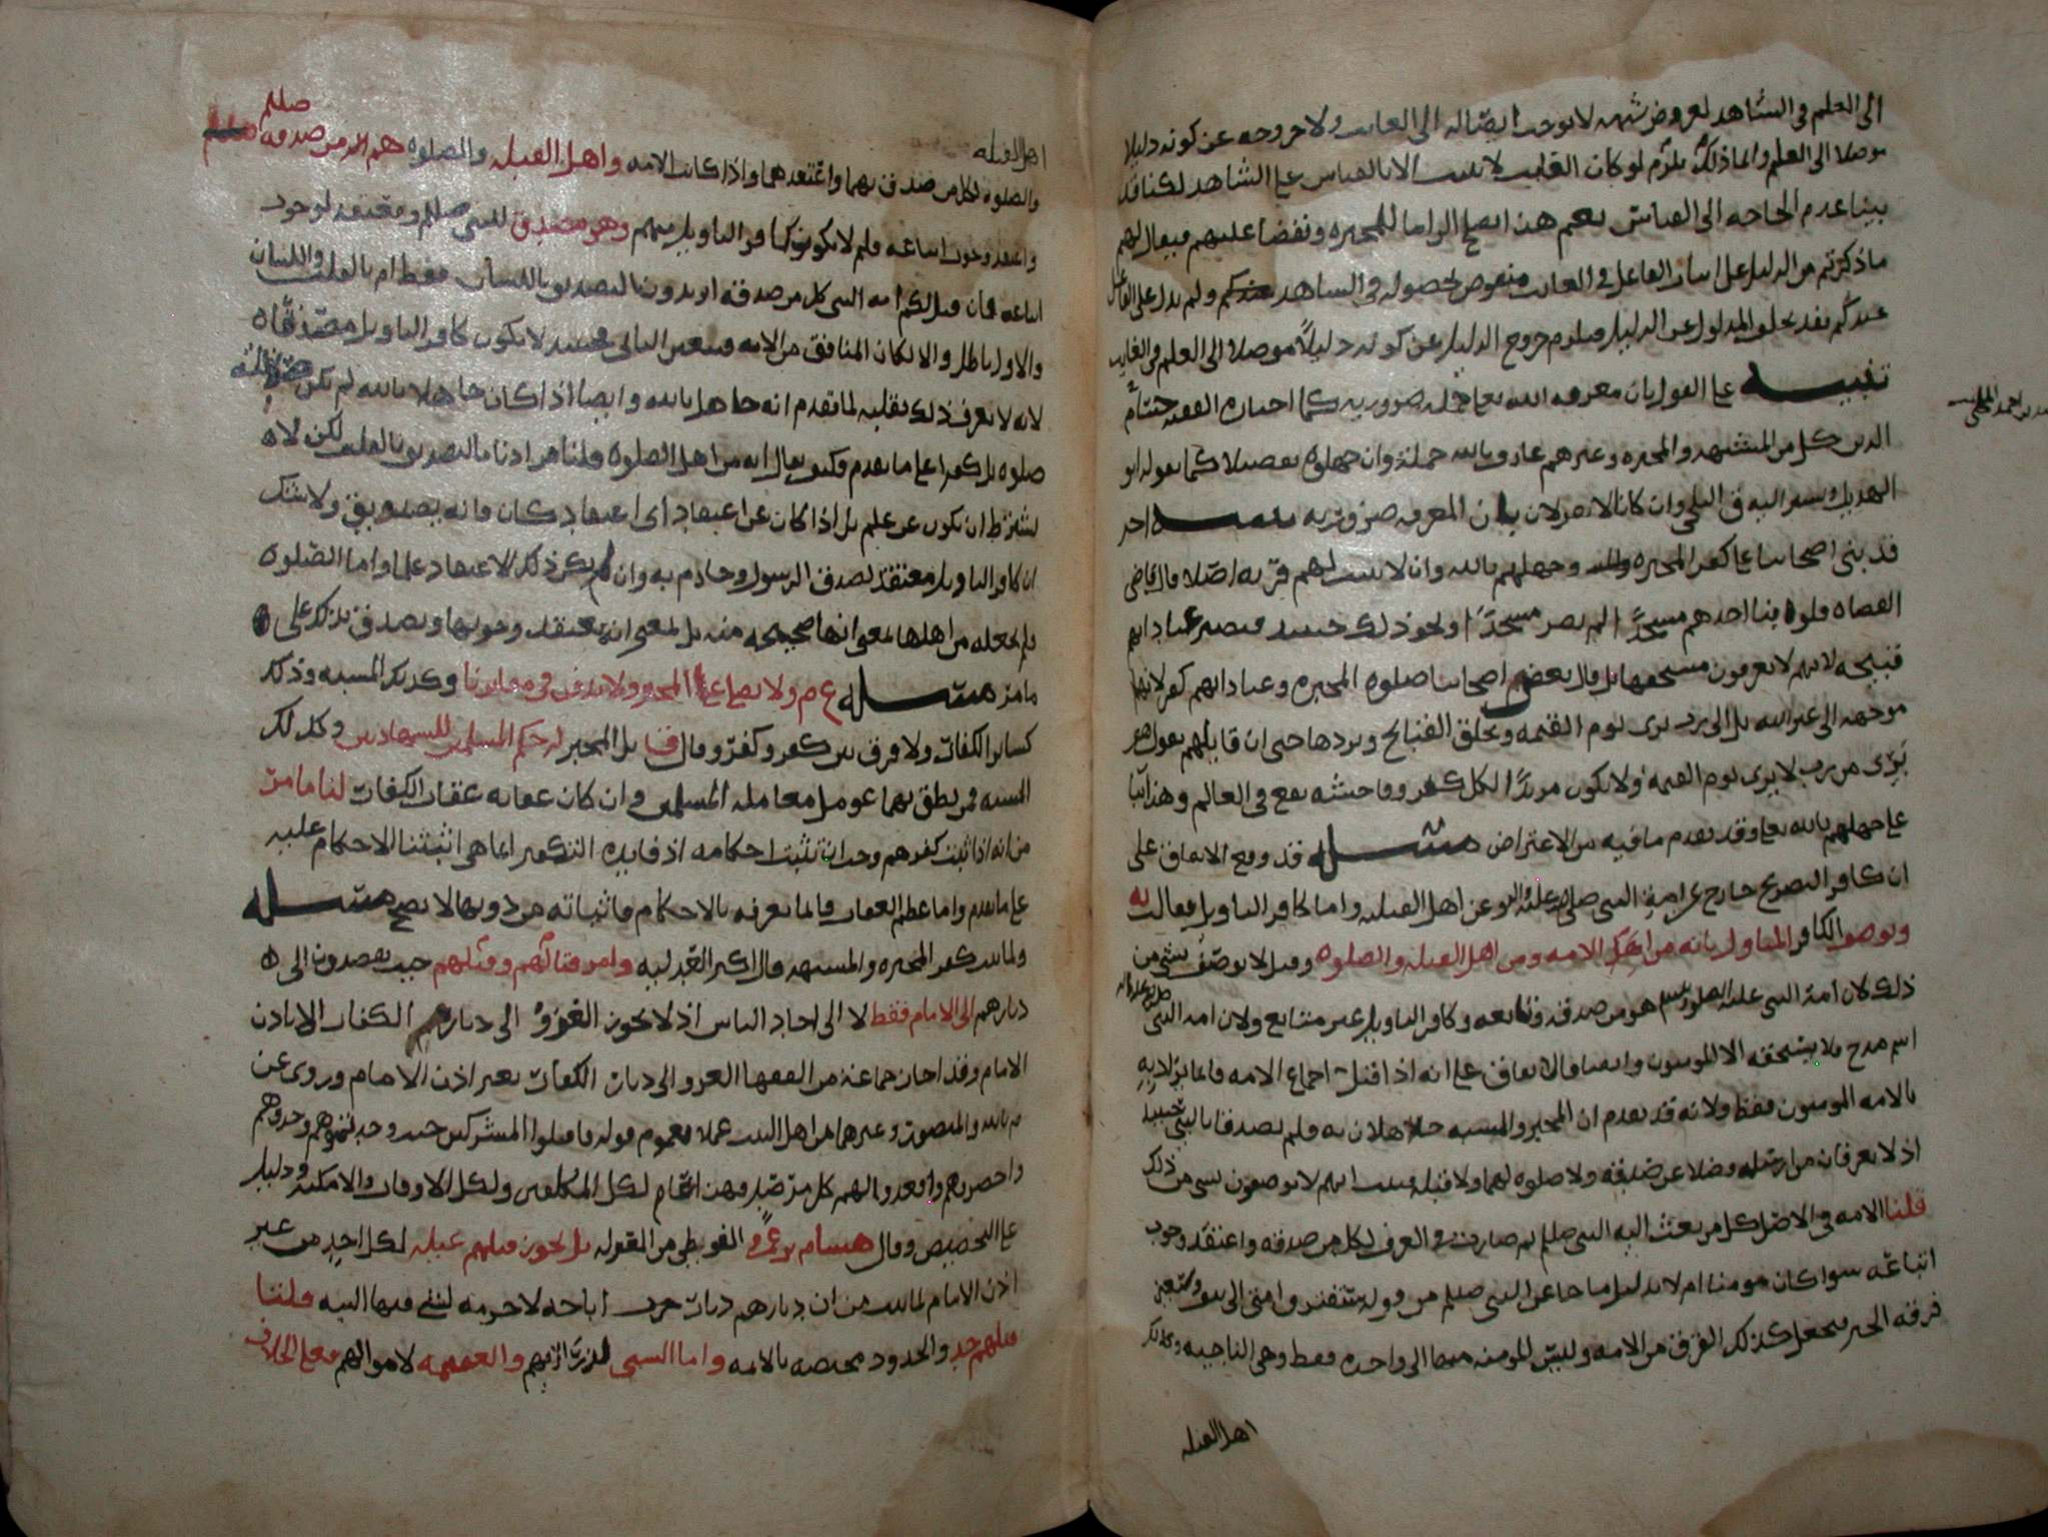 الى العلم فى الشاهد لعروض شبهه لا يوجب ايصاله الى الغايب ولا خروجه عن كونه دليلا
موصلا الى العلم وانما ذلك يلزم لو كان الغايب لا يثبت الا بالقياس على الشاهد لكنا قد
بينا عدم الحاجه الى القياس نعم هذا يصلح الزاما للمجبره ونقضا عليهم فيقال لهم
ما ذكرتم من الدليل على اثبات الفاعل فى الغايب منقوض بحصوله فى الشاهد عندكم ولم يدل على الفاعل
عندكم فقد خلو المدلول عن الدليل فيلزم خروج الدليل عن كونه دليلاً موصلا الى العلم فى الغايب
تنبيه على القول بان معرفه الله تعالى جمله ضروريه كما اختاره الفقيه حسام
الدين كل من المشبهه والمجبره وغيرهم عارف بالله جملة وان جهلوه تفصيلا كما يقوله ابو
الهذيل وتبعه اليه فى البلخى وان كانا لا يقولان بان المعرفه ضروريه تنبيه اخر
قد بنى اصحابنا على كفر المجبره وجهلهم بالله وان لا يثبت لهم قربه اصلا قال قاضى
القضاه فلو بنا احدهم مسجدًا لم يصر مسجدًا ونحو ذلك حينيد فتصير عباداتهم
قبيحه لانهم لا يعرفون مستحقها بل قال بعض اصحابنا صلوة المجبره وعباداتهم كفر لانها
موجهه الى غير الله بل الى رب يرى يوم القيمه ويخلق القبايح ويريدها حتى ان قايلهم يقول هو
برى من رب لا يرى يوم القيمه ولا يكون مريدًا لكل كفر وفاحشه تقع فى العالم وهذا بنا
على جهلهم بالله تعالى وقد تقدم ما فيه من الاعتراض مسئله قد وقع الاتفاق على
ان كافر التصريح خارج عن امة النبى صلى الله عليه واله وعن اهل القبله واما كافر التاويل فقالت يه
ويوصف الكافر المتاول بانه من الامه ومن اهل القبله والصلوه وقيل لا يوصف بشى من
ذلك لان امة النبى عليه الصلوه هو من صدقه وتابعه وكافر التاويل غير متابع ولان امه النبى
اسم مدح فلا يستحقه الا المومنون وايضا فالاتفاق على انه اذا قيل اجماع الامه فانما يراد به
بالامه المومنون فقط ولانه قد تقدم ان المجبر والمشبه جاهلان به فلم يصدقا بالنبى حينيد
اذ لا يعرفان من ارسله فضلا عن صدقه ولا صلوه لهما ولا قبله فثبت انهم لا يوصفون بشى من ذلك
قلنا الامه فى الاصل كل من بعث اليه النبى صلعم ثم صارت فى العرف لكل من صدقه واعتقد وجوب
اتباعه سوا كان مومنا ام لا بدليل ما جا عن النبى صلعم من قوله ستفترق امتى الى نيف وسبعين
فرقه الخبر فجعل كذلك الفرق من الامه وليس المومنه منها الا واحده فقط وهى الناجيه وكذلك
اهل القبله
اهل القبله
والصلوه لكل من صدق بهما واعتقدهما واذا كانت الامه واهل القبله والصلوه هم من صدقه صلعم
واعتقد وجوب اتباعه فلم لا يكون كافر التاويل منهم وهو مصدق للنبى صلعم ومعتقد لوجوب
اتباعه فان قيل لكم امه النبى كل من صدقه اتريدون التصديق باللسان فقط ام بالقلب واللسان
والاول باطل والا لكان المنافق من الامه فيتعين الثانى فحينيد لا يكون كافر التاويل مصدقا
لانه لا يعرف ذلك بقلبه لما تقدم انه جاهل بالله وايضا اذا كان جاهلا بالله لم تكن صلاته
صلوه بل كفرا على ما تقدم فكيف يقال انه من اهل الصلوه قلنا مرادنا بالتصديق بالقلب لكن لا
يشترط ان يكون عن علم بل اذا كان عن اعتقاد اى اعتقاد كان فانه تصديق ولا شك
ان كافر التاويل معتقد لصدق الرسول وجازم به وان لم يكن ذلك الاعتقاد علما واما الصلوه
فلم نجعله من اهلها بمعنى انها صحيحه منه بل بمعنى انه يعتقد وجوبها ويصدق بذلك على
ما مر مسئله ع م ولا يصلى على المجبر ولا يدفن فى مقابرنا وكذلك المشبه وذلك
كساير الكفار ولا فرق بين كفر وكفر وقال ق بل المجبر له حكم المسلمين للشهادتين وكذلك
المشبه فمن نطق بهما عومل معامله المسلمين وان كان عقابه عقاب الكفار لنا ما مر
من انه اذا ثبت كفرهم وجب ان تثبت احكامه اذ فايده التكفير انما هى اثباتنا الاحكام عليه
على ما تقدم واما عظم العقاب فانما نعرفه بالاحكام فاثباته من دونها لا يصح مسئله
ولما ثبت كفر المجبره والمشبهه قال اكثر العدليه وامر قتالهم وقتلهم حيث يقصدون الى
ديارهم الى الامام فقط لا الى احاد الناس اذ لا يجوز الغزو الى ديار الكفار الا باذن
الامام وقد اجاز جماعة من الفقها الغزو الى ديار الكفار بغير اذن الامام وروى عن
م بالله والمنصور وغيرهما من اهل البيت عملا بعموم قوله فاقتلوا المشركين حيث وجدتموهم وخذوهم
واحصروهم واقعدوا لهم كل مرصد وهذا عام لكل المكلفين ولكل الاوقات والامكنه ودليل
على التخصيص وقال هشام بن عمرو الفوطى من المعتزله بل يجوز قتلهم غيله لكل احد من غير
اذن الامام لما ثبت من ان ديارهم ديار حرب اباحه لا حرمه لشى فيها البته قلنا
قتلهم حد والحدود مختصه بالامه واما السبى لذراريهم والغنيمه لاموالهم فعلى الخلاف